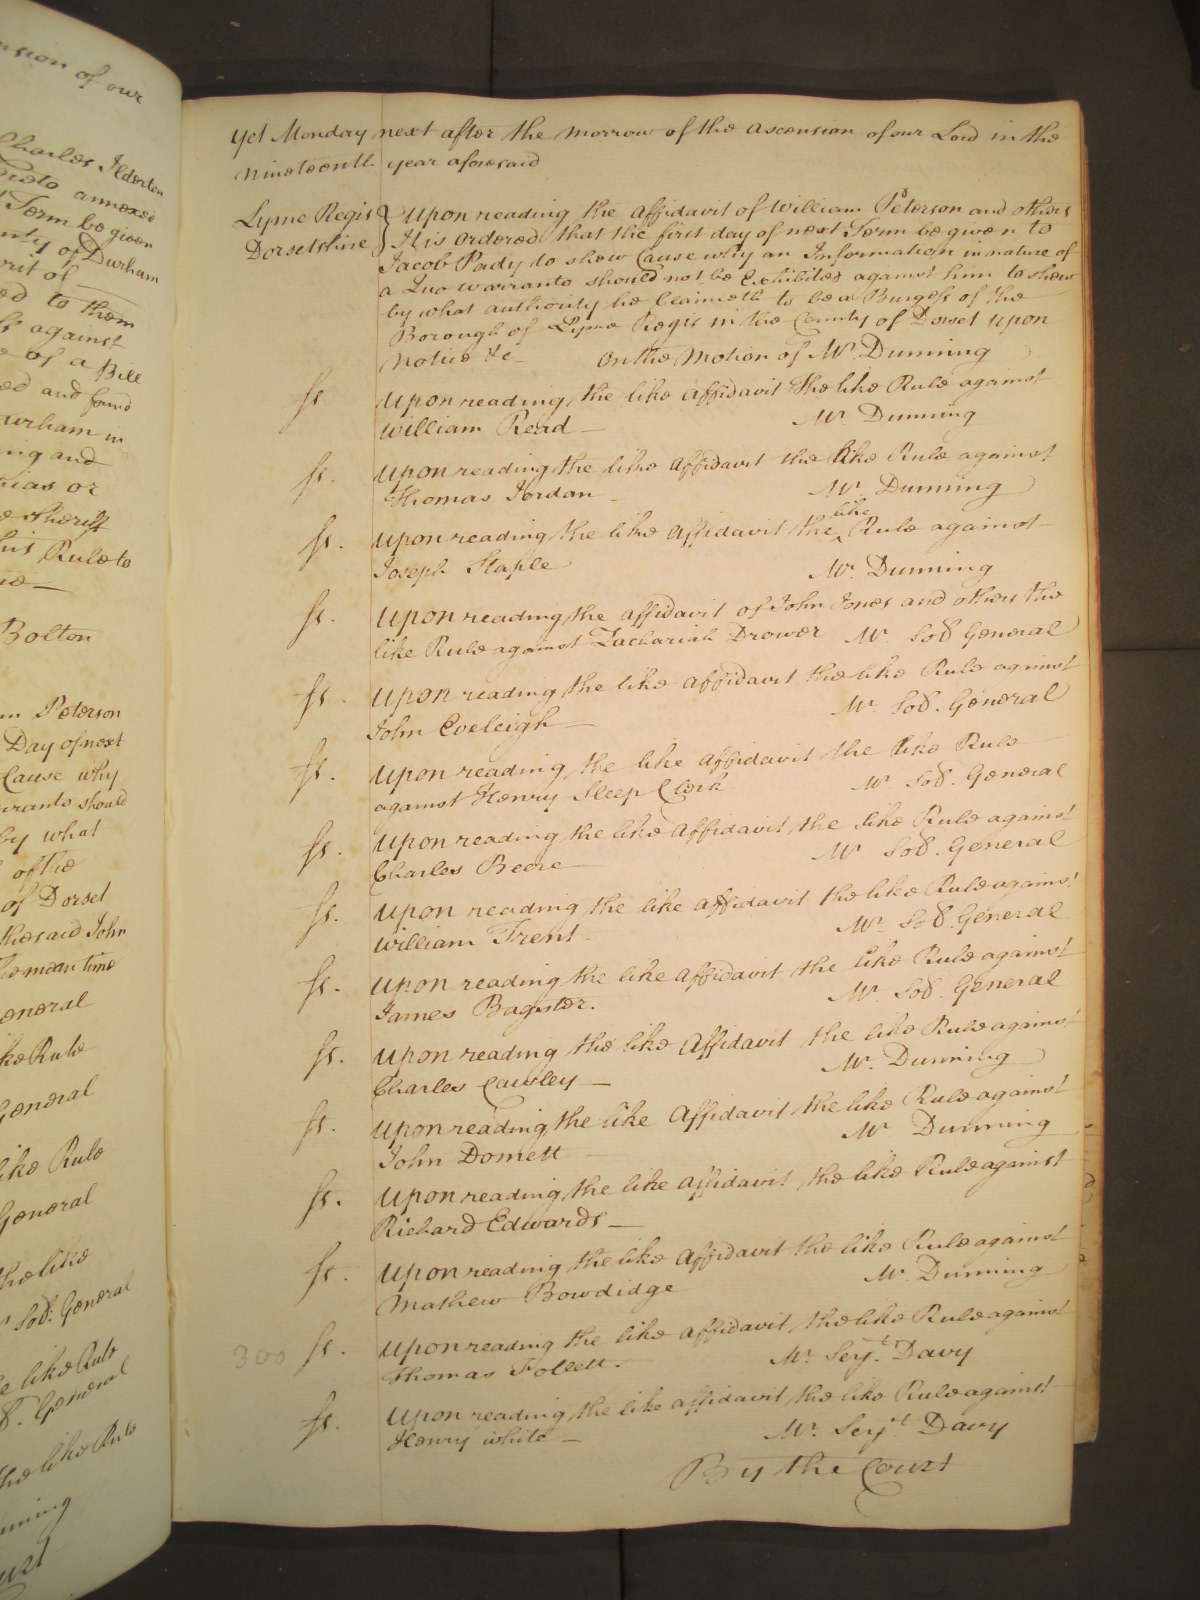 nsion of our
Charles Ilderton
annexed
Term be given
nty of Durham
writ of
ed to them
ss against
e of a Bill
ed and found
urham in
ing and
uas or
e Sheriff
his Rule to
Bolton
m Peterson
Day of next
Cause why
arranto should
by what
of the
of Dorset
the said John
he mean time
eneral
ike Rule
General
like Rule
General
the like
Sol. General
e like Rule
General
the like Rule
nning
urt
Yet Monday next after the morrow of the ascension of our Lord in the
nineteenth year aforesaid
Lyme Regis
Dorsetshire
Upon reading the Affidavit of William Peterson and others
It is ordered that the first day of next Term be given to
Jacob Pady to shew Cause why an Information in nature of
a Quo warranto should not be Exhibited against him to shew
by what authority he Claimeth to be a Burgess of the
Borough of Lyme Regis in the County of Dorset upon
Notice &c On the Motion of Mr. Dunning
ss Upon reading the like affidavit the like Rule against
William Read Mr. Dunning
ss. Upon reading the like affidavit the like Rule against
Thomas Jordan Mr. Dunning
ss. Upon reading the like affidavit the like Rule against
Joseph Staple Mr. Dunning
ss. Upon reading the affidavit of John Jones and others the
like Rule against Zachariah Drower Mr Sol General
ss. Upon reading the like affidavit the like Rule against
John Eveleigh Mr. Sol. General
ss. Upon reading the like affidavit the like Rule
against Henry Sleep Clerk Mr Sol. General
ss. Upon reading the like Affidavit the like Rule against
Charles Beere Mr Sol. General
ss. Upon reading the like affidavit the like Rule against
William Trent. Mr. Sol. General
ss. Upon reading the like affidavit the like Rule against
James Bagster. Mr. Sol. General
ss. Upon reading the like Affidavit the like Rule against
Charles Cawley Mr. Dunning
ss. Upon reading the like Affidavit the like Rule against
John Domett Mr Dunning
ss. Upon reading the like affidavit the like Rule against
Richard Edwards
ss. Upon reading the like Affidavit the like Rule against
Mathew Bowdidge Mr. Dunning
300 ss. Upon reading the like affidavit the like Rule against
Thomas Follett. Mr. Serjt. Davy
ss. Upon reading the like affidavit the like Rule against
Henry White Mr. Serjt. Davy
By the Court